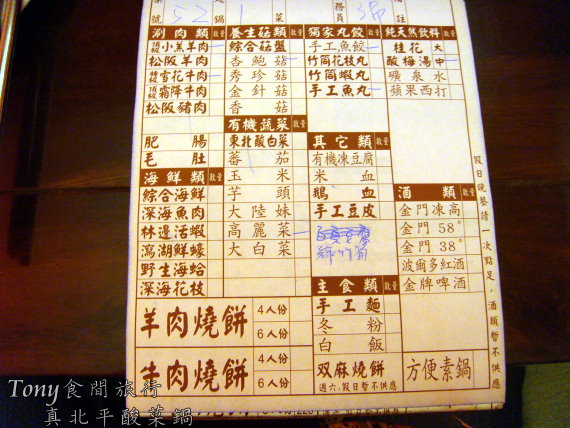 號 52 鍋 1 菜 務員
備註
涮肉類 數量
頂級小羔羊肉
松阪羊肉
特級雪花牛肉
頂級霜降牛肉
松阪豬肉
肥腸
毛肚
海鮮類 數量
綜合海鮮
深海魚肉
林邊活蝦
瀉湖鮮蠔
野生海蛤
深海花枝
養生菇類 數量
綜合菇盤
杏鮑菇
秀珍菇
金針菇
香菇
有機蔬菜 數量
東北酸白菜
蕃茄
玉米
芋頭
大陸妹
高麗菜
大白菜
獨家丸餃 數量
手工魚餃
竹筒花枝丸
竹筒蝦丸
手工魚丸
其它類 數量
有機凍豆腐
米血
鵝血
手工豆皮
綠竹筍
主食類 數量
手工麵
冬粉
白飯
双麻燒餅
週六.假日暫不供應
純天然飲料 數量
桂花 大
酸梅湯 中
礦泉水
蘋果西打
酒類 數量
金門凍高
金門 58°
金門 38°
波爾多紅酒
金牌啤酒
方便素鍋
羊肉燒餅 4人份
6人份
牛肉燒餅 4人份
6人份
假日晚餐請一次點足，酒類暫不供應
Tony食間旅行
真北平酸菜鍋